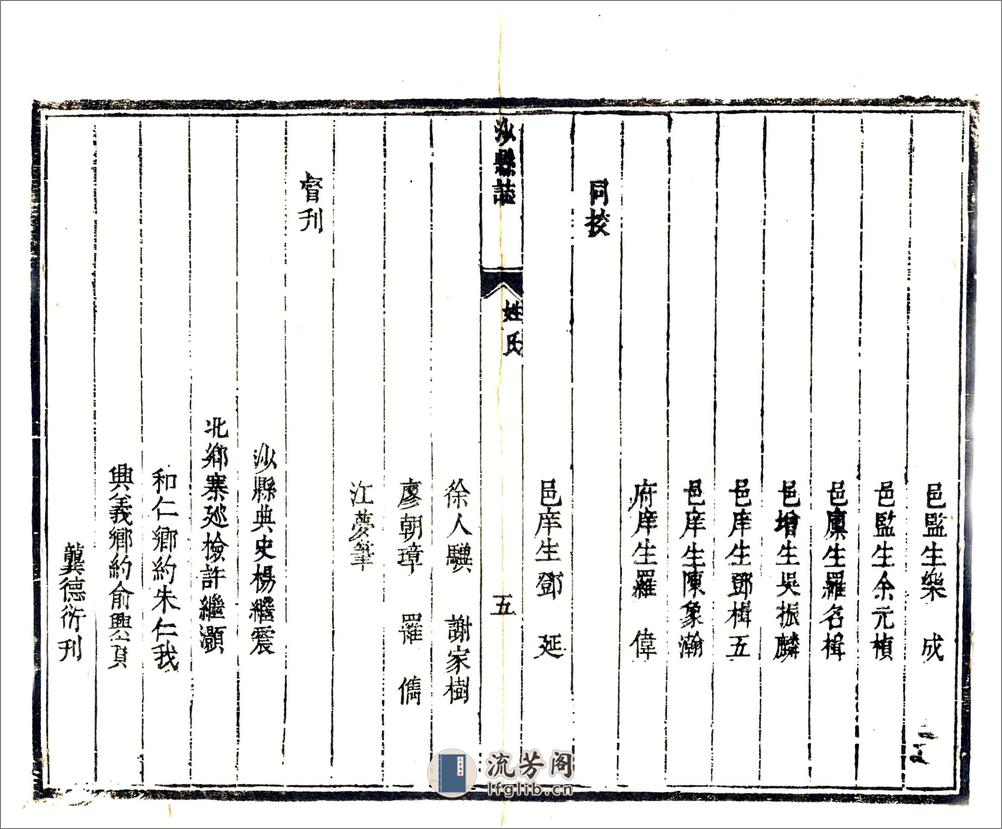 邑監生樂　成
邑監生余元楨
邑廩生羅名楫
邑增生吳振麟
邑庠生鄧楫五
邑庠生陳象瀚
府庠生羅　偉
同挍
邑庠生鄧　延
沙縣誌
姓氏
五
徐人驥　謝家樹
廖朝璋　羅　儁
江夢筆
督刋
沙縣典史楊繼震
北鄉寨廵檢許繼灝
和仁鄉約朱仁我
興義鄉約俞興
龔德衍刋
流芳阁
lfglib.cn